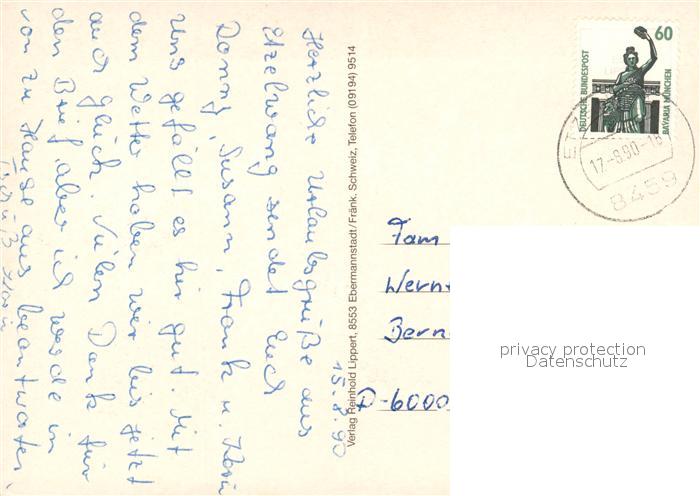 15.8.90
Herzliche Urlaubsgrüße aus
Etzelwang sendet Euch
Donny, Susann, Frank u.
Uns gefällt es hir gut. Mit
dem Wetter haben wir bis jetzt
auch glück. Vielen Dank für
den Brief, aber ich werde in
von zu Hause aus beantworten.
Gruß
Verlag Reinhold Lippert, 8553 Ebermannstadt/Fränk. Schweiz, Telefon (09194) 9514
60
DEUTSCHE BUNDESPOST
BAVARIA MÜNCHEN
17.-8.90-16
8459
Fam
Wern
Bern
D-6000
privacy protection
Datenschutz